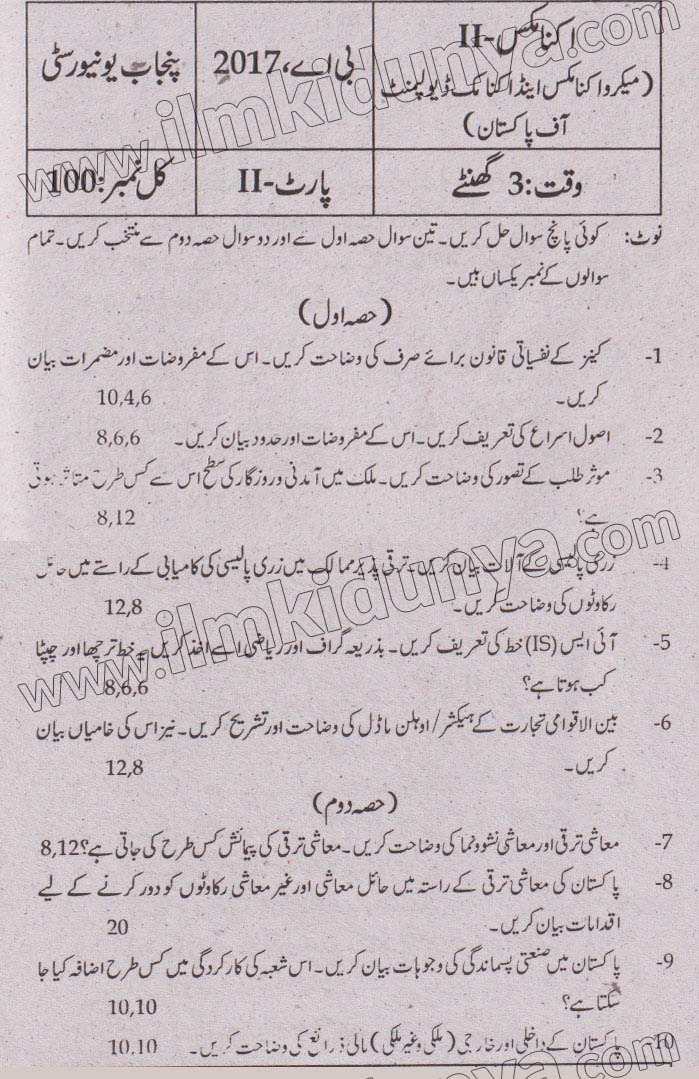 اکنامکس-II
(میکرو اکنامکس اینڈ اکنامک ڈیولپمنٹ
آف پاکستان)
بی اے، 2017
پنجاب یونیورسٹی
وقت: 3 گھنٹے
پارٹ-II
کل نمبر: 100
نوٹ: کوئی پانچ سوال حل کریں۔ تین سوال حصہ اول سے اور دو سوال حصہ دوم سے منتخب کریں۔ تمام
سوالوں کے نمبر یکساں ہیں۔
(حصہ اول)
1- کینز کے نفسیاتی قانون برائے صرف کی وضاحت کریں۔ اس کے مفروضات اور مضمرات بیان
کریں۔ 10,4,6
2- اصول اسراع کی تعریف کریں۔ اس کے مفروضات اور حدود بیان کریں۔ 8,6,6
3- موثر طلب کے تصور کی وضاحت کریں۔ ملک میں آمدنی و روزگار کی سطح اس سے کس طرح متاثر ہوتی
ہے؟ 8,12
4- زری پالیسی کے آلات بیان کریں۔ ترقی پذیر ممالک میں زری پالیسی کی کامیابی کے راستے میں حائل
رکاوٹوں کی وضاحت کریں۔ 12,8
5- آئی ایس (IS) خط کی تعریف کریں۔ بذریعہ گراف اور ریاضی اسے اخذ کریں۔ یہ خط ترچھا اور چپٹا
کب ہوتا ہے؟ 8,6,6
6- بین الاقوامی تجارت کے ہیکشر/اوہلن ماڈل کی وضاحت اور تشریح کریں۔ نیز اس کی خامیاں بیان
کریں۔ 12,8
(حصہ دوم)
7- معاشی ترقی اور معاشی نشوونما کی وضاحت کریں۔ معاشی ترقی کی پیمائش کس طرح کی جاتی ہے؟ 8,12
8- پاکستان کی معاشی ترقی کے راستہ میں حائل معاشی اور غیر معاشی رکاوٹوں کو دور کرنے کے لیے
اقدامات بیان کریں۔ 20
9- پاکستان میں صنعتی پسماندگی کی وجوہات بیان کریں۔ اس شعبہ کی کارکردگی میں کس طرح اضافہ کیا جا
سکتا ہے؟ 10,10
10- پاکستان کے داخلی اور خارجی (ملکی و غیر ملکی) مالی ذرائع کی وضاحت کریں۔ 10,10
www.ilmkidunya.com
www.ilmkidunya.com